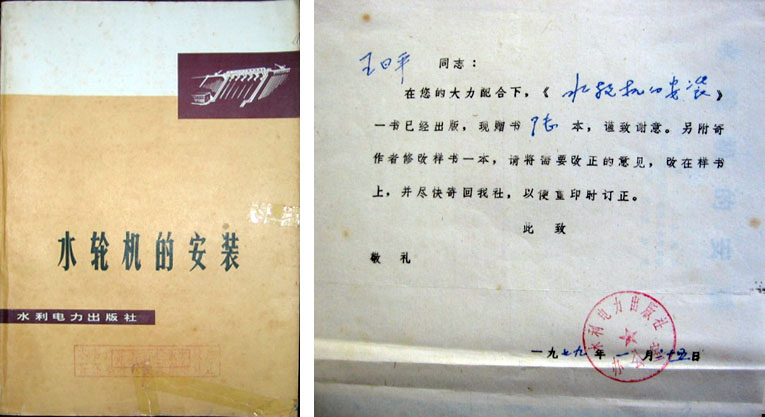 水轮机的安装
水利电力出版社
王日平 同志：
在您的大力配合下，《水轮机的安装》
一书已经出版，现赠书 本，谨致谢意。另附寄
作者修改样书一本，请将需要改正的意见，改在样书
上，并尽快寄回我社，以便重印时订正。
此 致
敬 礼
水利电力出版社
办公室
一九七九年一月二十五日